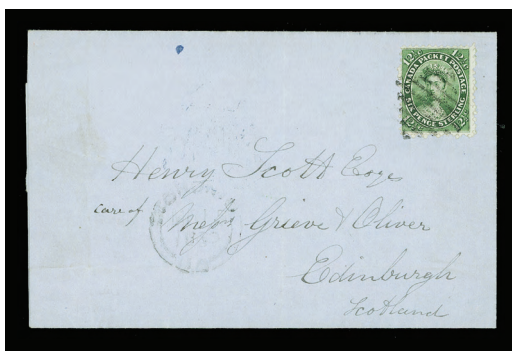 12½ 12½
CANADA PACKET POSTAGE
SIX PENCE STERLING
Henry Scott Esqr
care of Messrs Grieve & Oliver
Edinburgh
Scotland